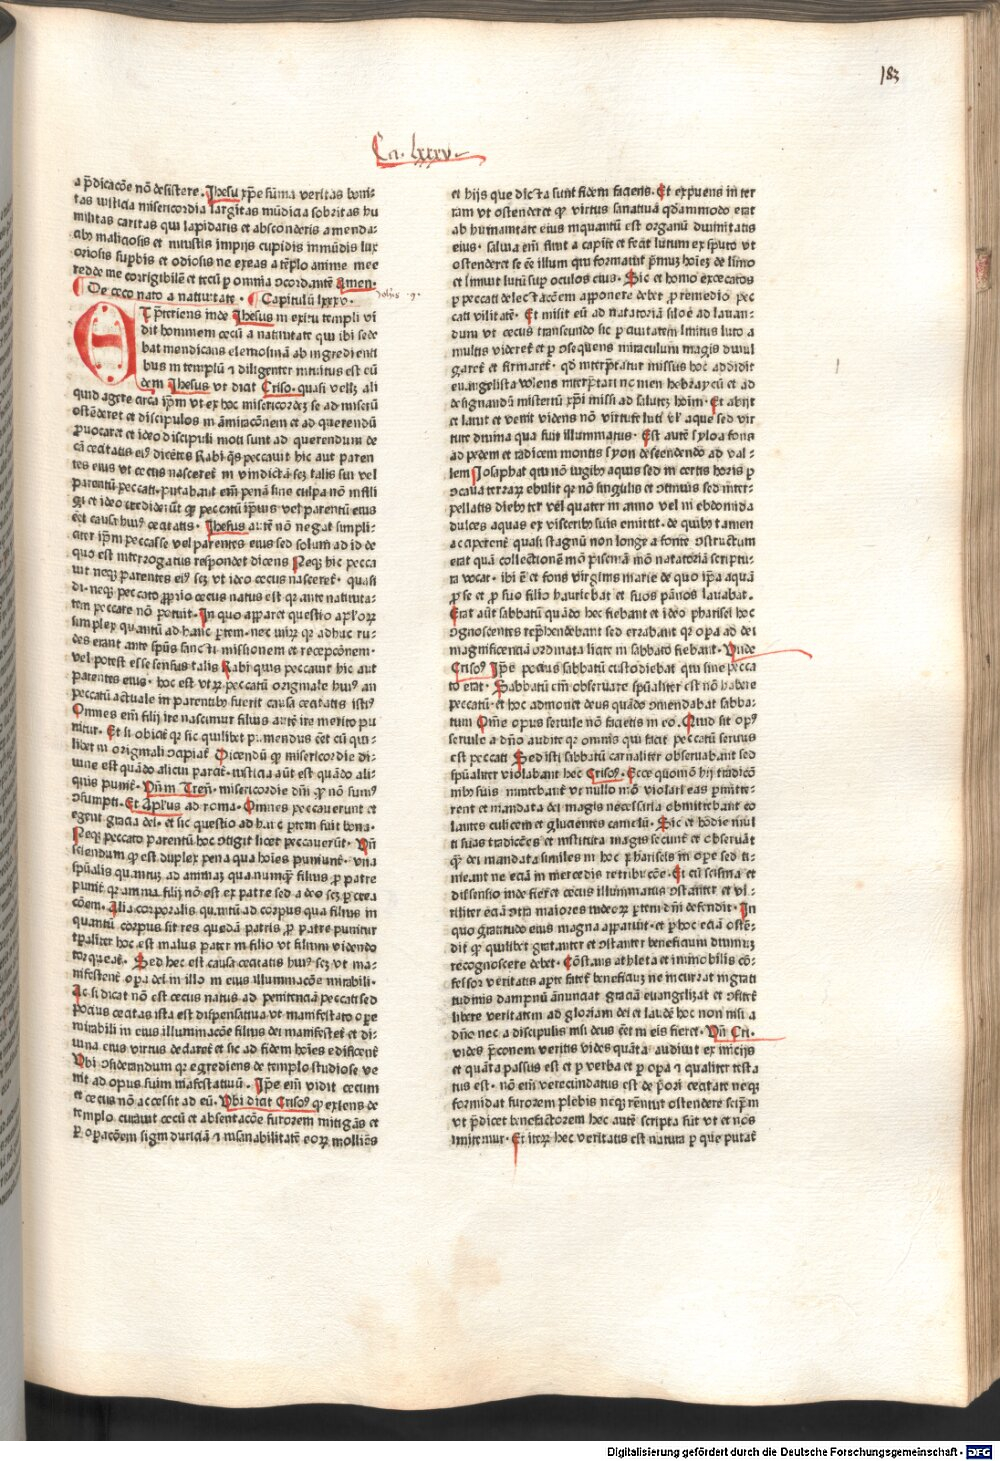 183
Ca. lxxxv.
a p̄dicacōe nō desistere. Jhesu xp̄e sūma veritas boni-
tas iusticia misericordia largitas mūdicia sobrietas hu
militas caritas qui lapidaris et absconderis a menda-
cib⁹ maliciosis et iniustis impijs cupidis inmūdis lux
oriosis suꝑbis et odiosis ne exeas a tēplo anime mee
redde me corrigibilē et tecū ꝑ omnia ꝯcordantē Amen.
De ceco nato a natiuitate. Capitulū lxxxv.
Johīs .9.
ET p̄teriens inde Jhesus in exitu templi vi
dit hominem cecū a natiuitate qui ibi sede
bat mendicans elemosinā ab ingredienti
bus in templū ⁊ diligenter intuitus est eū
dem Jhesus vt dicit Criso. quasi vellꝫ ali
quid agere circa ip̄m vt ex hoc misericordeꝫ se ad miserū
ostēderet et discipulos in āmiracōnem et ad querendū
ꝓuocaret et ideo discipuli moti sunt ad querendum de
cā cecitatis ei⁹ dicētes Rabi q̄s peccauit hic aut paren
tes eius vt cecus nasceret̄ in vindictā scꝫ talis sui vel
parentū peccati. putabant em̄ penā sine culpa nō infli
gi et ideo credider̄ut ꝙ peccatū ip̄ius vel parentū eius
eēt causa hui⁹ cecitatis. Jhesus autē nō negat simpli-
citer ip̄m peccasse vel parentes eius sed solum ad id de
quo est interrogatus respondet dicens Neqꝫ hic pecca
uit neqꝫ parentes ei⁹ scꝫ vt ideo cecus nasceret̄. quasi
di. neqꝫ peccato ꝓprio cecus natus est qꝛ ante natiuita-
tem peccare nō potuit. In quo apparet questio apl'oꝝ
simplex quantū ad hanc ꝑtem. nec mirꝝ qꝛ adhuc ru-
des erant ante sp̄us sancti missionem et recepcōnem.
Vel potest esse sensus talis Rabi quis peccauit hic aut
parentes eius. hoc est vtꝝ peccatū originale hui⁹ an
peccatū actuale in parentib⁹ fuerit causa cecitatis isti⁹
Omnes em̄ filij ire nascimur filius autē ire merito pu
nitur. Et si obiciat̄ qꝛ sic quilibet pumendus eēt cū qui-
libet in originali ꝯcipiat̄ Dicendū ꝙ misericordie di-
uine est quādo alicui parcit. iusticia aūt est quādo ali-
quis punit̄. Vn̄ in Tren̄. misericordie dn̄i ꝙ nō sum⁹
ꝯsumpti. Et Apl'us ad roma. Omnes peccauerunt et
egent gracia dei. et sic questio ad hanc ꝑtem fuit bona.
Neqꝫ peccato parentū hoc ꝯtigit licet peccauerūt. Vn̄
sciendum ꝙ est duplex pena qua hoīes puniunt̄. vna
spūalis quantuꝫ ad animaꝫ qua nunqꝫ filius ꝓ patre
punit̄ qꝛ anima filij nō est ex patre sed a deo scꝫ ꝑ crea
cōem. Alia corporalis quantū ad corpus qua filius in
quantū corpus sit res quedā patris ꝓ patre punitur
tꝑaliter hoc est malus pater in filio vt filium videndo
torqueat̄. Sed hec est causa cecitatis hui⁹ scꝫ vt ma-
nifestent̄ oꝑa dei in illo in eius illuminacōe mirabili.
Ac si dicat nō est cecus natus ad penitenciā peccati sed
pocius cecitas ista est dispensatiua vt manifestato oꝑe
mirabili in eius illuminacōe filius dei manifestet̄ et di-
uina eius virtus declaret̄ et sic ad fidem hoīes edificent̄
Vbi ꝯsiderandum qꝛ egrediens de templo studiose ve
nit ad opus suim māfestatiuū. Ip̄e em̄ vidit cecum
et cecus nō accessit ad eū. Vbi dicit Criso⁹ ꝙ exiens de
templo curauit cecū et absentacōe furorem mitigās et
ꝑ oꝑacōem signi duriciā ⁊ insanabilitatē eoꝝ molliēs
et hijs que dicta sunt fidem faciens. Et expuens in ter
ram vt ostenderet ꝙ virtus sanatiua qd̄ammodo erat
ab humanitate eius inquantū est organū diuinitatis
eius. saliua em̄ fluit a capite et fecit lutum ex sputo vt
ostenderet se eē illum qui formauit p̄muꝫ hoīeꝫ de limo
et liniuit lutū suꝑ oculos eius. Sic et homo excecatus
ꝑ peccati delectacōem apponere debet ꝓ remedio pec
cati vilitatē. Et misit eū ad natatoriā siloe ad lauan-
dum vt cecus transeundo sic ꝑ ciuitatem linitus luto a
multis videret̄ et ꝑ ꝯsequens miraculum magis diuul
garet̄ et firmaret̄. qd̄ interp̄tatur missus hoc addidit
euangelista volens interp̄tari nomen hebraycū et ad
designandū misteriū xp̄i missi ad saluteꝫ hoīm. Et abijt
et lauit et venit videns nō virtute luti vl' aque sed vir
tute diuina qua fuit illuminatus. Est autē syloa fons
ad pedem et radicem montis syon descendendo ad val-
lem Josaphat qui nō iugib⁹ aquis sed in certis horis ꝑ
ꝯcaua terraꝝ ebulit qꝛ nō singulis et ꝯtinuis sed inter-
pellatis dieb⁹ ter vel quater in anno vel in ebdomida
dulces aquas ex visceri⁹ suis emittit. de quib⁹ tamen
accaperent̄ quasi stagnū non longe a fonte ꝯstructum
erat quā collectionem mō piscinā mō natatoriā scriptu-
ra vocat. ibi ē et fons virginis marie de quo ip̄a aquā
ꝓ se et ꝓ suo filio hauriebat et suos pānos lauabat.
Erat aūt sabbatū quādo hec fiebant et ideo pharisei hoc
ꝯgnoscentes rep̄hendebant sed errabant qꝛ oꝑa ad dei
magnificenciā ordinata licite in sabbato fiebant. Vnde
Criso⁹ Ip̄e pocius sabbatū custodiebat qui sine pecca
to erat. Sabbatū em̄ obseruare spūaliter est nō habere
peccatū. et hoc admonet deus quādo ꝯmendabat sabba-
tum Om̄e opus seruile nō facietis in eo. Quid sit op⁹
seruile a dn̄o audite qꝛ omnis qui facit peccatū seruus
est peccati Sed isti sabbatū carnaliter obseruabant sed
spūaliter violabant hec Criso⁹. Ecce quomō hij tradicō
nib⁹ suis innitebant̄ vt nullo mō violari eas ꝑmitte-
rent et mandata dei magis necessaria obmittebant co
lantes culicem et glucientes camelū. Sic et hodie mul
ti suas tradicōes et instituta magis seciunt et obseruāt
qꝫ dei mandata similes in hoc phariseis in oꝑe sed ti-
meant ne eciā in mercedis retribucōe. Et cū scisma et
dissensio inde fieret cecus illuminatus ꝯstanter et vi-
riliter eciā ꝯtra maiores iudeoꝝ ꝑtem dn̄i defendit. In
quo gratitudo eius magna apparuit. et ꝑ hoc eciā ostē-
dit̄ ꝙ quilibet gratanter et ꝯstanter beneficium diuinuꝫ
recognoscere debet. Cōstans athleta et inmobilis cō-
fessor veritatis aꝑte fatet̄ beneficiuꝫ ne incurrat ingrati
tudinis dampnū ānunciat graciā euangelizat et ꝯfitet̄
libere veritatem ad gloriam dei et laudē hoc non nisi a
dn̄o nec a discipulis nisi deus eēt in eis fieret. Vn̄ Cri.
vides p̄conem veritis vides quāta audiuit ex inicijs
et quāta passus est et ꝑ verba et ꝑ oꝑa ⁊ qualiter testa
tus est. nō em̄ verecundatus est de p̄ori cecitate neqꝫ
formidat furorem plebis neqꝫ rēnuit ostendere seip̄m
vt p̄dicet benefactorem hec autē scripta sūt vt et nos
imitemur. Et iteꝝ hec veritatis est natura ꝑ que putat̄
Digitalisierung gefördert durch die Deutsche Forschungsgemeinschaft - DFG